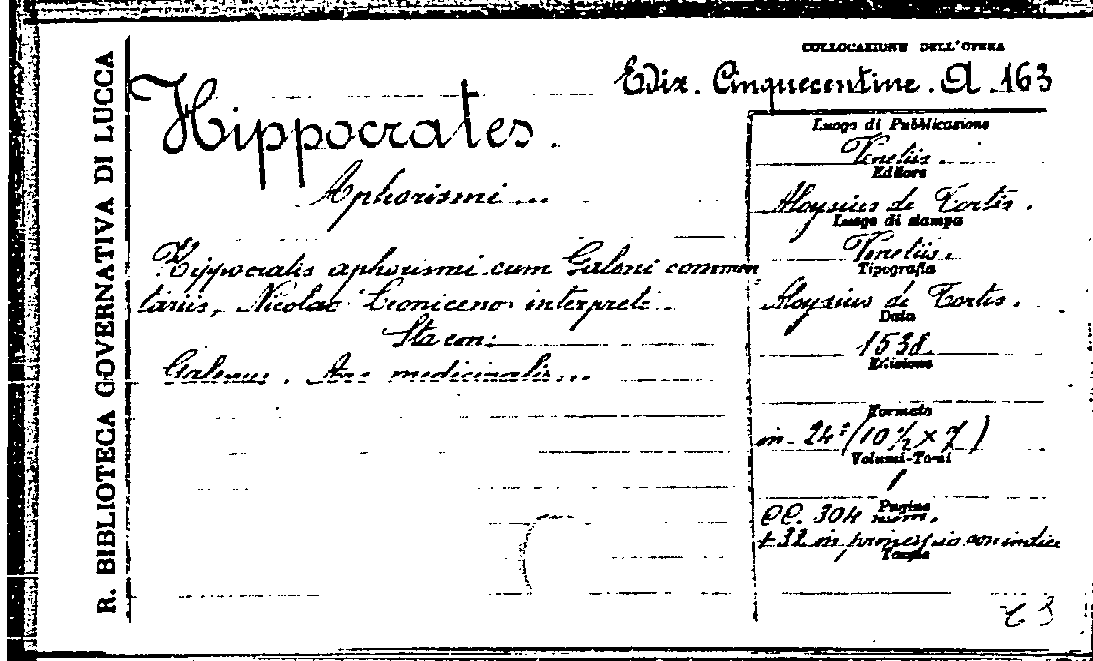 R. BIBLIOTECA GOVERNATIVA DI LUCCA
COLLOCAZIONE DELL'OPERA
Ediz. Cinquecentine. A. 163
Hippocrates.
Aphorismi...
Hippocratis aphorismi cum Galeni commen
tariis, Nicolao Leoniceno interprete..
Sta con:
Galenus. Ars medicinalis...
Luogo di Pubblicazione
Venetiis.
Editore
Aloysius de Tortis.
Luogo di stampa
Venetiis.
Tipografia
Aloysius de Tortis.
Data
1538.
Edizione
Formato
in-24° (10½ x 7)
Volumi-Tomi
1
Pagine
CC. 304 numer.
+32 in principio con indice
Tavole